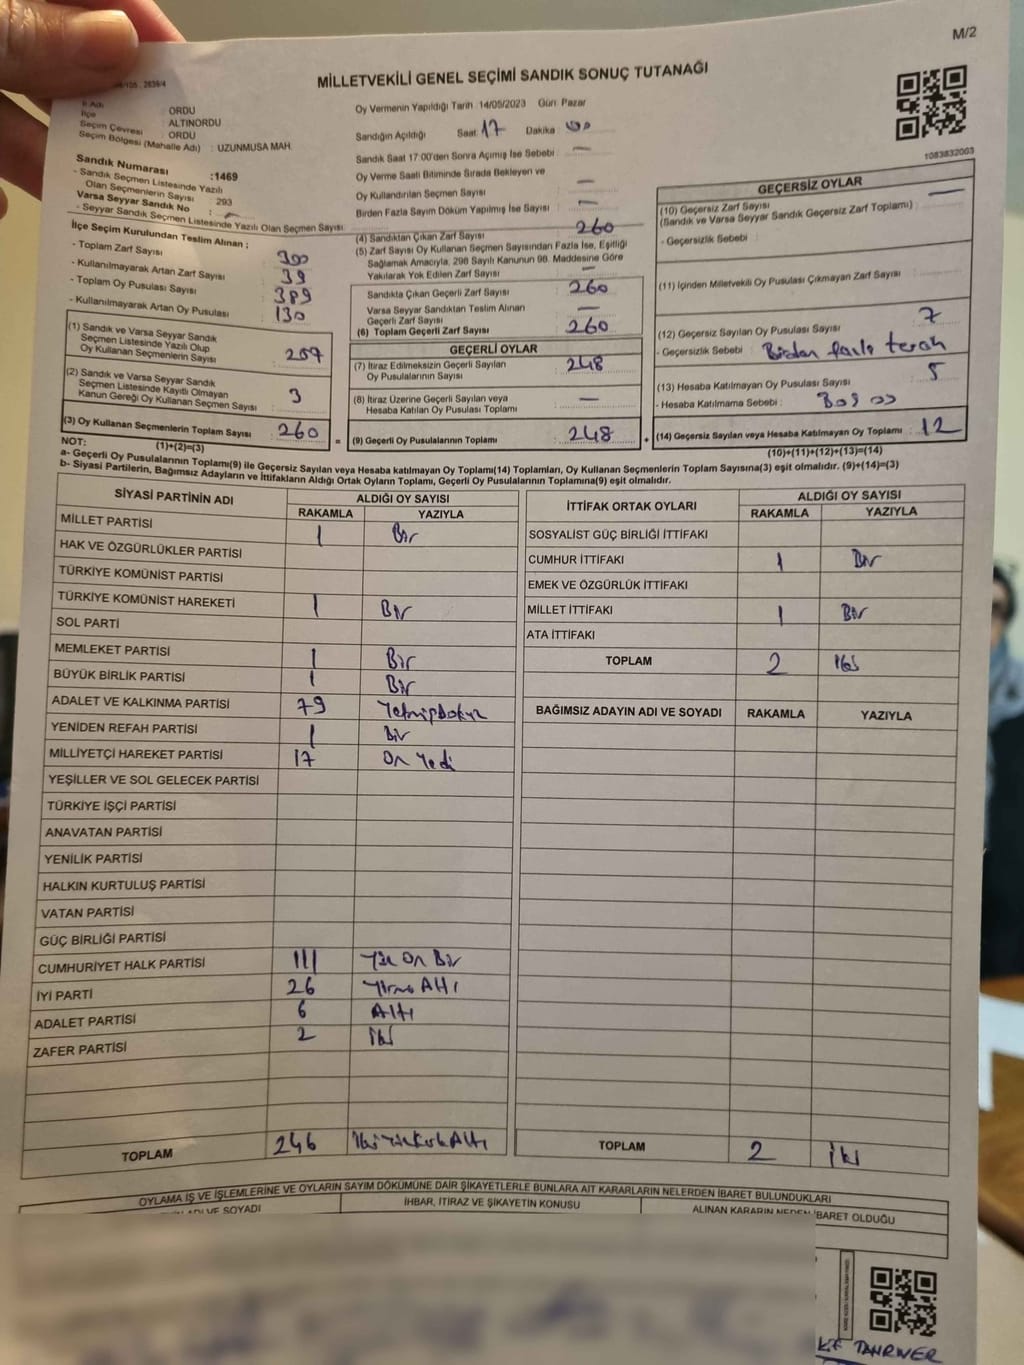 M/2
MİLLETVEKİLİ GENEL SEÇİMİ SANDIK SONUÇ TUTANAĞI
İl Adı : ORDU
İlçe : ALTINORDU
Seçim Çevresi : ORDU
Seçim Bölgesi (Mahalle Adı) : UZUNMUSA MAH.
Sandık Numarası :1469
- Sandık Seçmen Listesinde Yazılı
Olan Seçmenlerin Sayısı : 293
Varsa Seyyar Sandık No : —
- Seyyar Sandık Seçmen Listesinde Yazılı Olan Seçmen Sayısı :
Oy Vermenin Yapıldığı Tarih : 14/05/2023 Gün: Pazar
Sandığın Açıldığı Saat: 17 Dakika 00
Sandık Saat 17:00'den Sonra Açımış İse Sebebi : —
Oy Verme Saati Bitiminde Sırada Bekleyen ve
Oy Kullandırılan Seçmen Sayısı : —
Birden Fazla Sayım Döküm Yapılmış İse Sayısı : —
1083832003
İlçe Seçim Kurulundan Teslim Alınan ;
- Toplam Zarf Sayısı : 300
- Kullanılmayarak Artan Zarf Sayısı : 39
- Toplam Oy Pusulası Sayısı : 389
- Kullanılmayarak Artan Oy Pusulası : 130
(1) Sandık ve Varsa Seyyar Sandık
Seçmen Listesinde Yazılı Olup
Oy Kullanan Seçmenlerin Sayısı : 257
(2) Sandık ve Varsa Seyyar Sandık
Seçmen Listesinde Kayıtlı Olmayan
Kanun Gereği Oy Kullanan Seçmen Sayısı : 3
(3) Oy Kullanan Seçmenlerin Toplam Sayısı : 260
(1)+(2)=(3)
(4) Sandıktan Çıkan Zarf Sayısı : 260
(5) Zarf Sayısı Oy Kullanan Seçmen Sayısından Fazla İse, Eşitliği
Sağlamak Amacıyla, 298 Sayılı Kanunun 98. Maddesine Göre
Yakılarak Yok Edilen Zarf Sayısı : —
Sandıkta Çıkan Geçerli Zarf Sayısı : 260
Varsa Seyyar Sandıktan Teslim Alınan
Geçerli Zarf Sayısı : —
(6) Toplam Geçerli Zarf Sayısı : 260
GEÇERLİ OYLAR
(7) İtiraz Edilmeksizin Geçerli Sayılan
Oy Pusulalarının Sayısı : 248
(8) İtiraz Üzerine Geçerli Sayılan veya
Hesaba Katılan Oy Pusulası Toplamı : —
= (9) Geçerli Oy Pusulalarının Toplamı : 248
GEÇERSİZ OYLAR
(10) Geçersiz Zarf Sayısı —
(Sandık ve Varsa Seyyar Sandık Geçersiz Zarf Toplamı) :
- Geçersizlik Sebebi :
(11) İçinden Milletvekili Oy Pusulası Çıkmayan Zarf Sayısı :
(12) Geçersiz Sayılan Oy Pusulası Sayısı : 7
- Geçersizlik Sebebi : Birden fazla tercih
(13) Hesaba Katılmayan Oy Pusulası Sayısı : 5
- Hesaba Katılmama Sebebi :
+ (14) Geçersiz Sayılan veya Hesaba Katılmayan Oy Toplamı : 12
(10)+(11)+(12)+(13)=(14)
NOT:
a- Geçerli Oy Pusulalarının Toplamı(9) ile Geçersiz Sayılan veya Hesaba katılmayan Oy Toplamı(14) Toplamları, Oy Kullanan Seçmenlerin Toplam Sayısına(3) eşit olmalıdır. (9)+(14)=(3)
b- Siyasi Partilerin, Bağımsız Adayların ve İttifakların Aldığı Ortak Oyların Toplamı, Geçerli Oy Pusulalarının Toplamına(9) eşit olmalıdır.
SİYASİ PARTİNİN ADI ALDIĞI OY SAYISI
RAKAMLA YAZIYLA
MİLLET PARTİSİ 1 Bir
HAK VE ÖZGÜRLÜKLER PARTİSİ
TÜRKİYE KOMÜNİST PARTİSİ
TÜRKİYE KOMÜNİST HAREKETİ 1 Bir
SOL PARTİ
MEMLEKET PARTİSİ 1 Bir
BÜYÜK BİRLİK PARTİSİ 1 Bir
ADALET VE KALKINMA PARTİSİ 79 Yetmişdokuz
YENİDEN REFAH PARTİSİ 1 Bir
MİLLİYETÇİ HAREKET PARTİSİ 17 On Yedi
YEŞİLLER VE SOL GELECEK PARTİSİ
TÜRKİYE İŞÇİ PARTİSİ
ANAVATAN PARTİSİ
YENİLİK PARTİSİ
HALKIN KURTULUŞ PARTİSİ
VATAN PARTİSİ
GÜÇ BİRLİĞİ PARTİSİ
CUMHURİYET HALK PARTİSİ 111 Yüz On Bir
İYİ PARTİ 26 Yirmi Altı
ADALET PARTİSİ 6 Altı
ZAFER PARTİSİ 2 İki
TOPLAM 246 İkiYüzKırkAltı
İTTİFAK ORTAK OYLARI ALDIĞI OY SAYISI
RAKAMLA YAZIYLA
SOSYALİST GÜÇ BİRLİĞİ İTTİFAKI
CUMHUR İTTİFAKI 1 Bir
EMEK VE ÖZGÜRLÜK İTTİFAKI
MİLLET İTTİFAKI 1 Bir
ATA İTTİFAKI
TOPLAM 2 İki
BAĞIMSIZ ADAYIN ADI VE SOYADI RAKAMLA YAZIYLA
TOPLAM 2 İki
OYLAMA İŞ VE İŞLEMLERİNE VE OYLARIN SAYIM DÖKÜMÜNE DAİR ŞİKAYETLERLE BUNLARA AİT KARARLARIN NELERDEN İBARET BULUNDUKLARI
ADI VE SOYADI İHBAR, İTİRAZ VE ŞİKAYETİN KONUSU ALINAN KARARIN NEDEN İBARET OLDUĞU